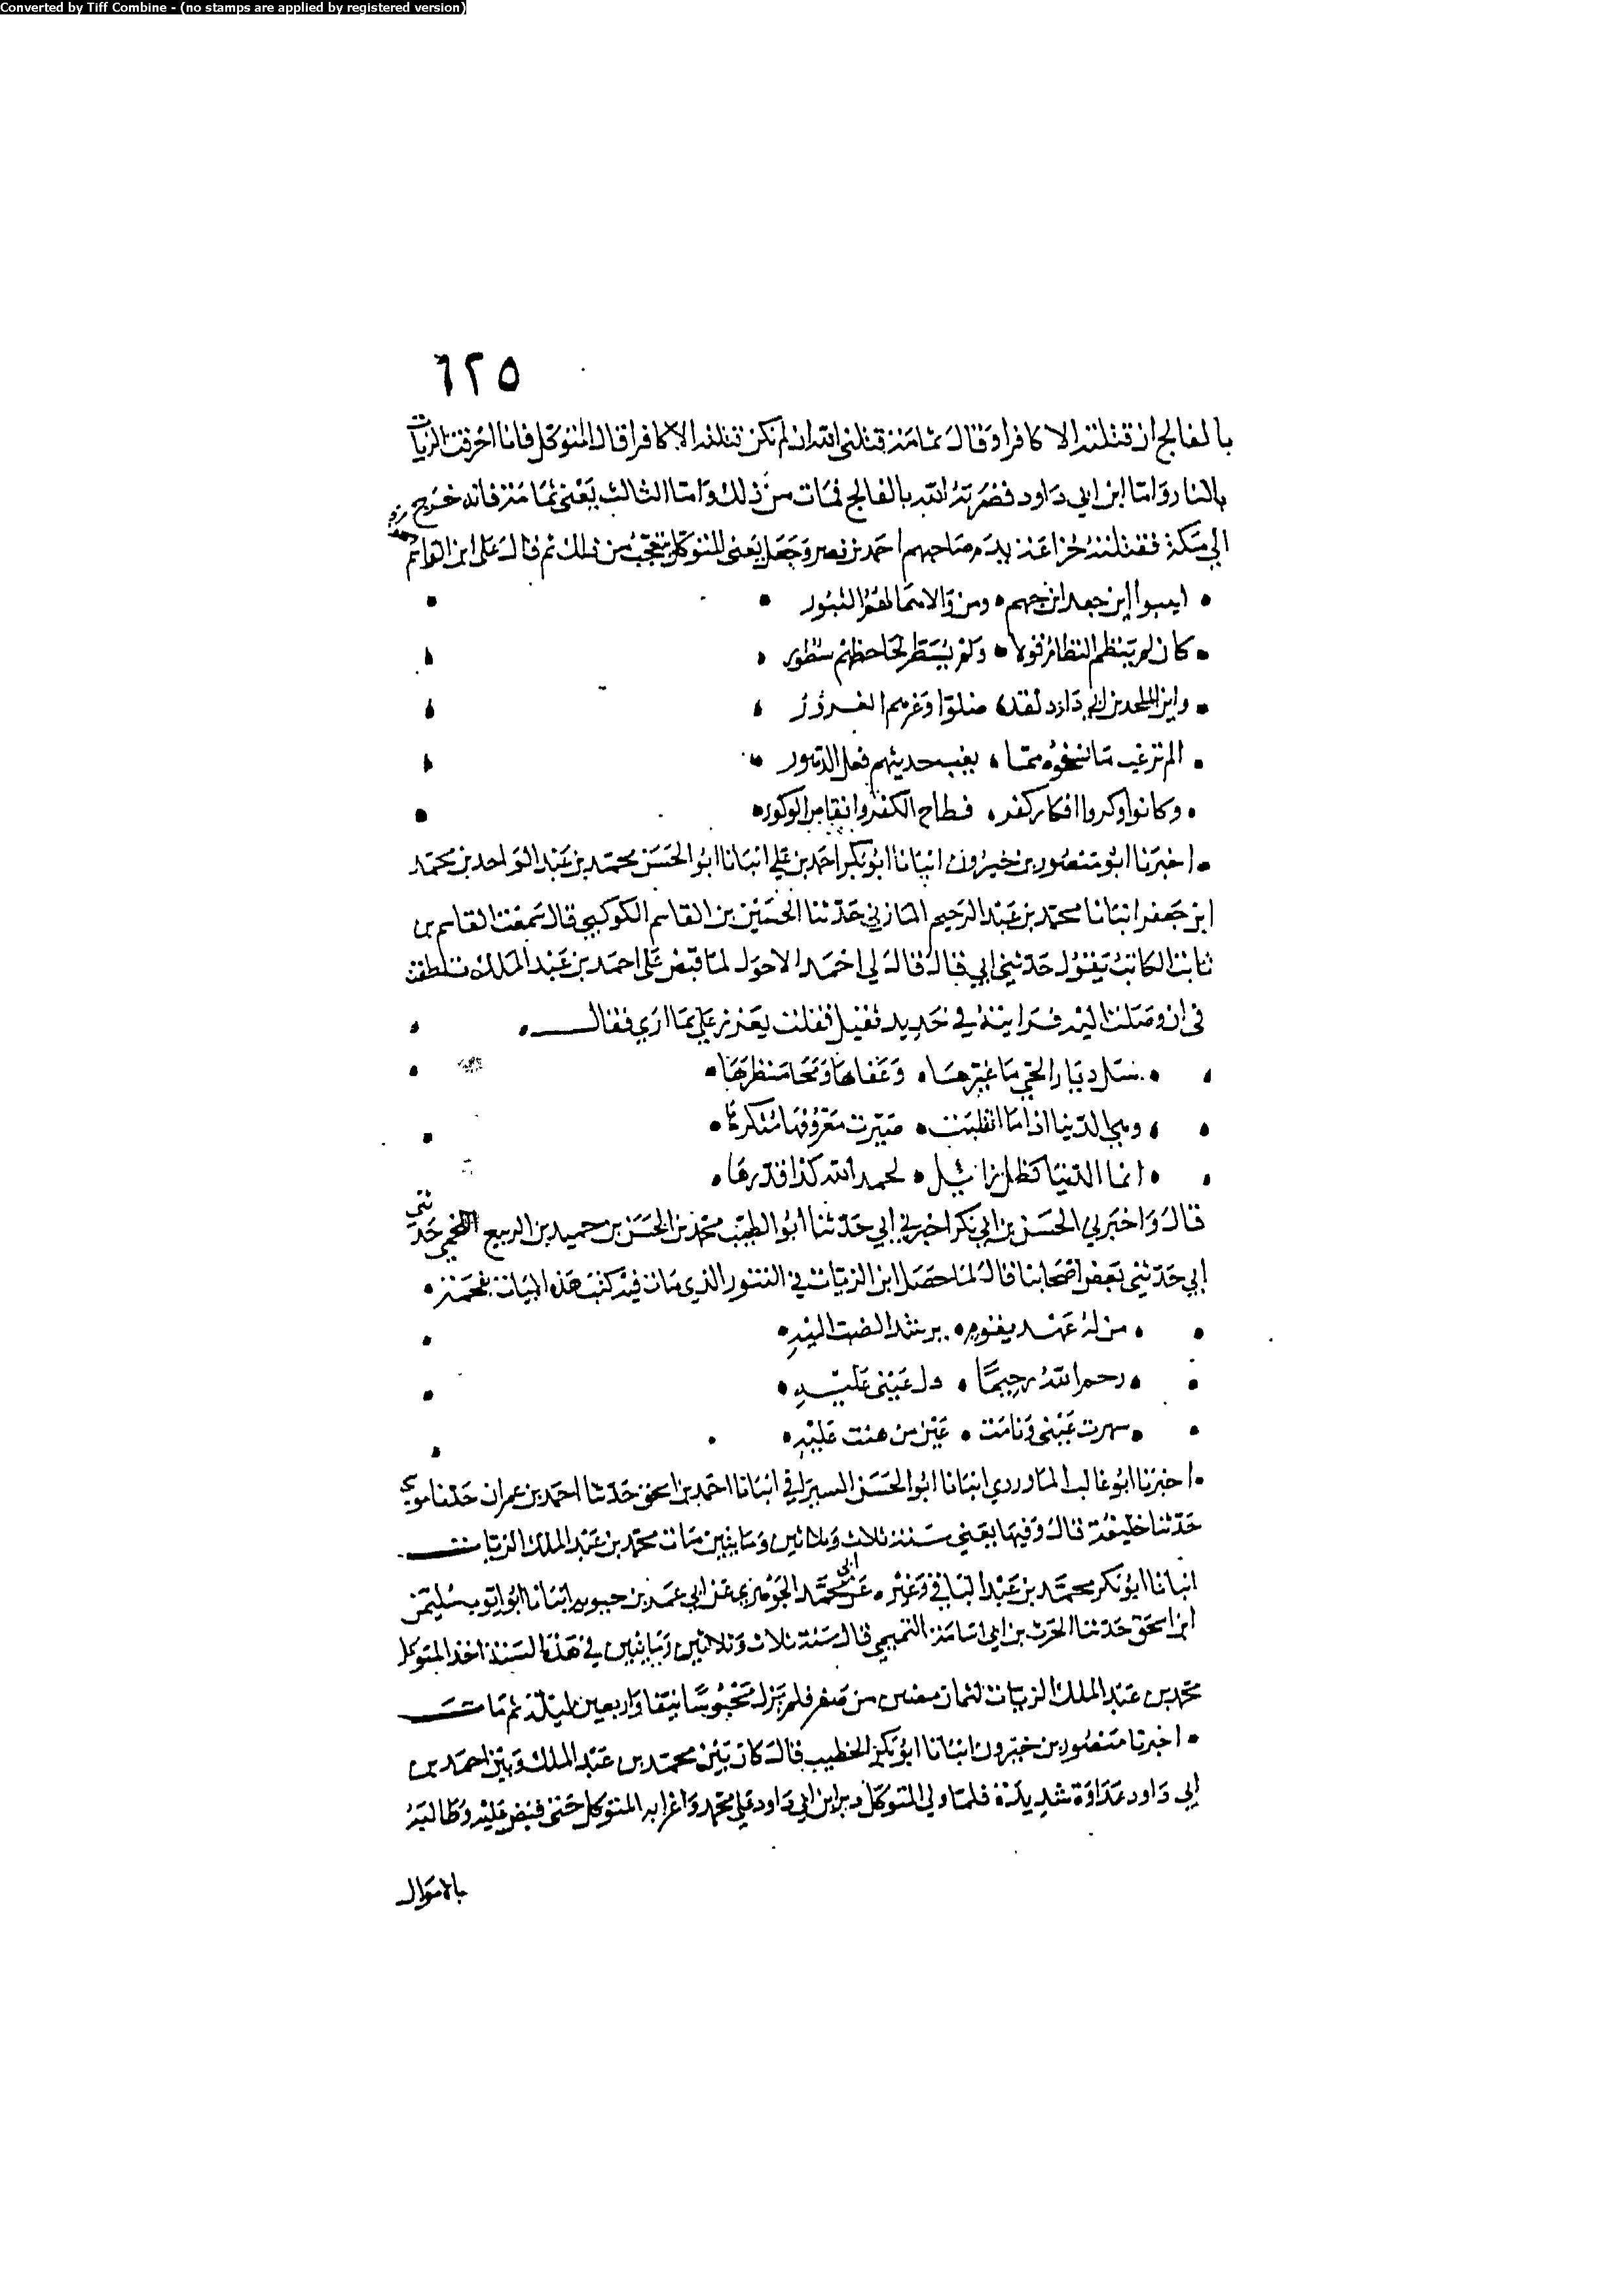 Converted by Tiff Combine - (no stamps are applied by registered version)
٦٢٥
بالفالج ان قتلته الا كافرا وقال ثمامة قتلني الله ان لم تكن قتلته الا كافرا قال المتوكل فانا احرقت الزيات
بالنار واما ابن ابي داود فضربه الله بالفالج فمات من ذلك واما الثالث يعني ثمامة فانه خرج
الى مكة فقتلته خزاعة صاحبهم احمد بن نصر وجعل يعني المتوكل يتعجب من ذلك ثم قال على ابن
ومن والاهما لهم الثبور
كان لم ينظم النظام قولا ولم يسطر لجاحظهم سطور
واين الملحد بن ابي داود لقد ضلوا وغرهم الغرور
وكانوا وكروا افكار كفر فطاح الكفر وانقاص الوكور
اخبرنا ابو منصور بن خيرون انبانا ابو بكر احمد بن علي انبانا ابو الحسن محمد بن عبد الواحد بن محمد
ابن جعفر انبانا محمد بن عبد الرحيم المازني حدثنا الحسين بن القاسم الكوكبي قال سمعت القاسم بن
ثابت الكاتب يقول حدثني ابي قال قال لي احمد الاحول لما قبض على احمد بن عبد الملك تلطفت
في ان وصلت اليه فرايته في حديد ثقيل فقلت يعزز علي بما ارى فقال
سل ديار الحي ما غيرها وعفاها ومحا منظرها
وهي الدنيا اذا ما انقلبت صيرت معروفها منكرها
انما الدنيا كظل زائل نحمد الله كذا قدرها
قال واخبرني الحسن بن ابي بكر اخبرني ابي حدثنا ابو الطيب محمد بن الحسن بن حميد بن الربيع اللخمي حدثني
ابي حدثني بعض اصحابنا قال لما حصل ابن الزيات في التنور الذي مات فيه كتب هذه الابيات بفحمة
من له عهد بنوم يرشد الصب اليه
رحم الله رحيما دل عيني عليه
سهرت عيني ونامت عين من هنت عليه
اخبرنا ابو غالب الماوردي انبانا ابو الحسن السيرافي انبانا احمد بن اسحق حدثنا احمد بن عمران حدثنا موسى
حدثنا خليفة قال وفيها يعني سنة ثلاث وثلاثين ومايتين مات محمد بن عبد الملك الزيات
انبانا ابو بكر محمد بن عبد الباقي وغيره عن ابي محمد الجوهري عن ابي عمر بن حيويه انبانا ابو ايوب سليمن
ابن اسحق حدثنا الحرث بن ابي اسامة التميمي قال سنة ثلاث وثلاثين ومايتين في هذه السنة اخذ المتوكل
محمد بن عبد الملك الزيات لثمان مضين من صفر فلم يزل محبوسا نيفا واربعين ليلة ثم مات
اخبرنا منصور بن خيرون انبانا ابو بكر الخطيب قال كان بين محمد بن عبد الملك وبين احمد بن
ابي داود عداوة شديدة فلما ولي المتوكل دبر ابن ابي داود على محمد واغرا به المتوكل حتى قبض عليه وطالبه
بالاموال